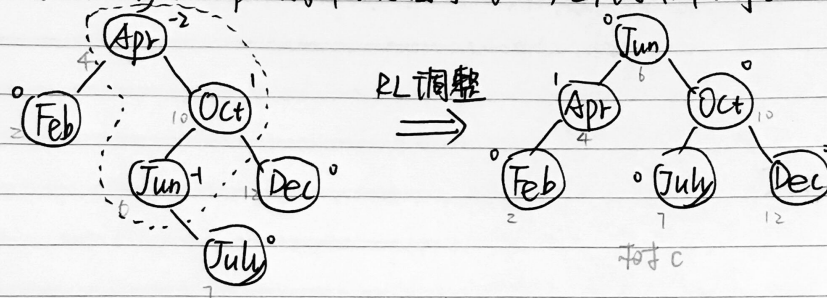 Apr -2
4
0 Feb
2
1 Oct
10
Jun -1
6
Dec 0
12
July 0
7
RL调整
0 Jun
6
1 Apr
4
Oct 0
10
0 Feb
2
0 July
7
Dec
12